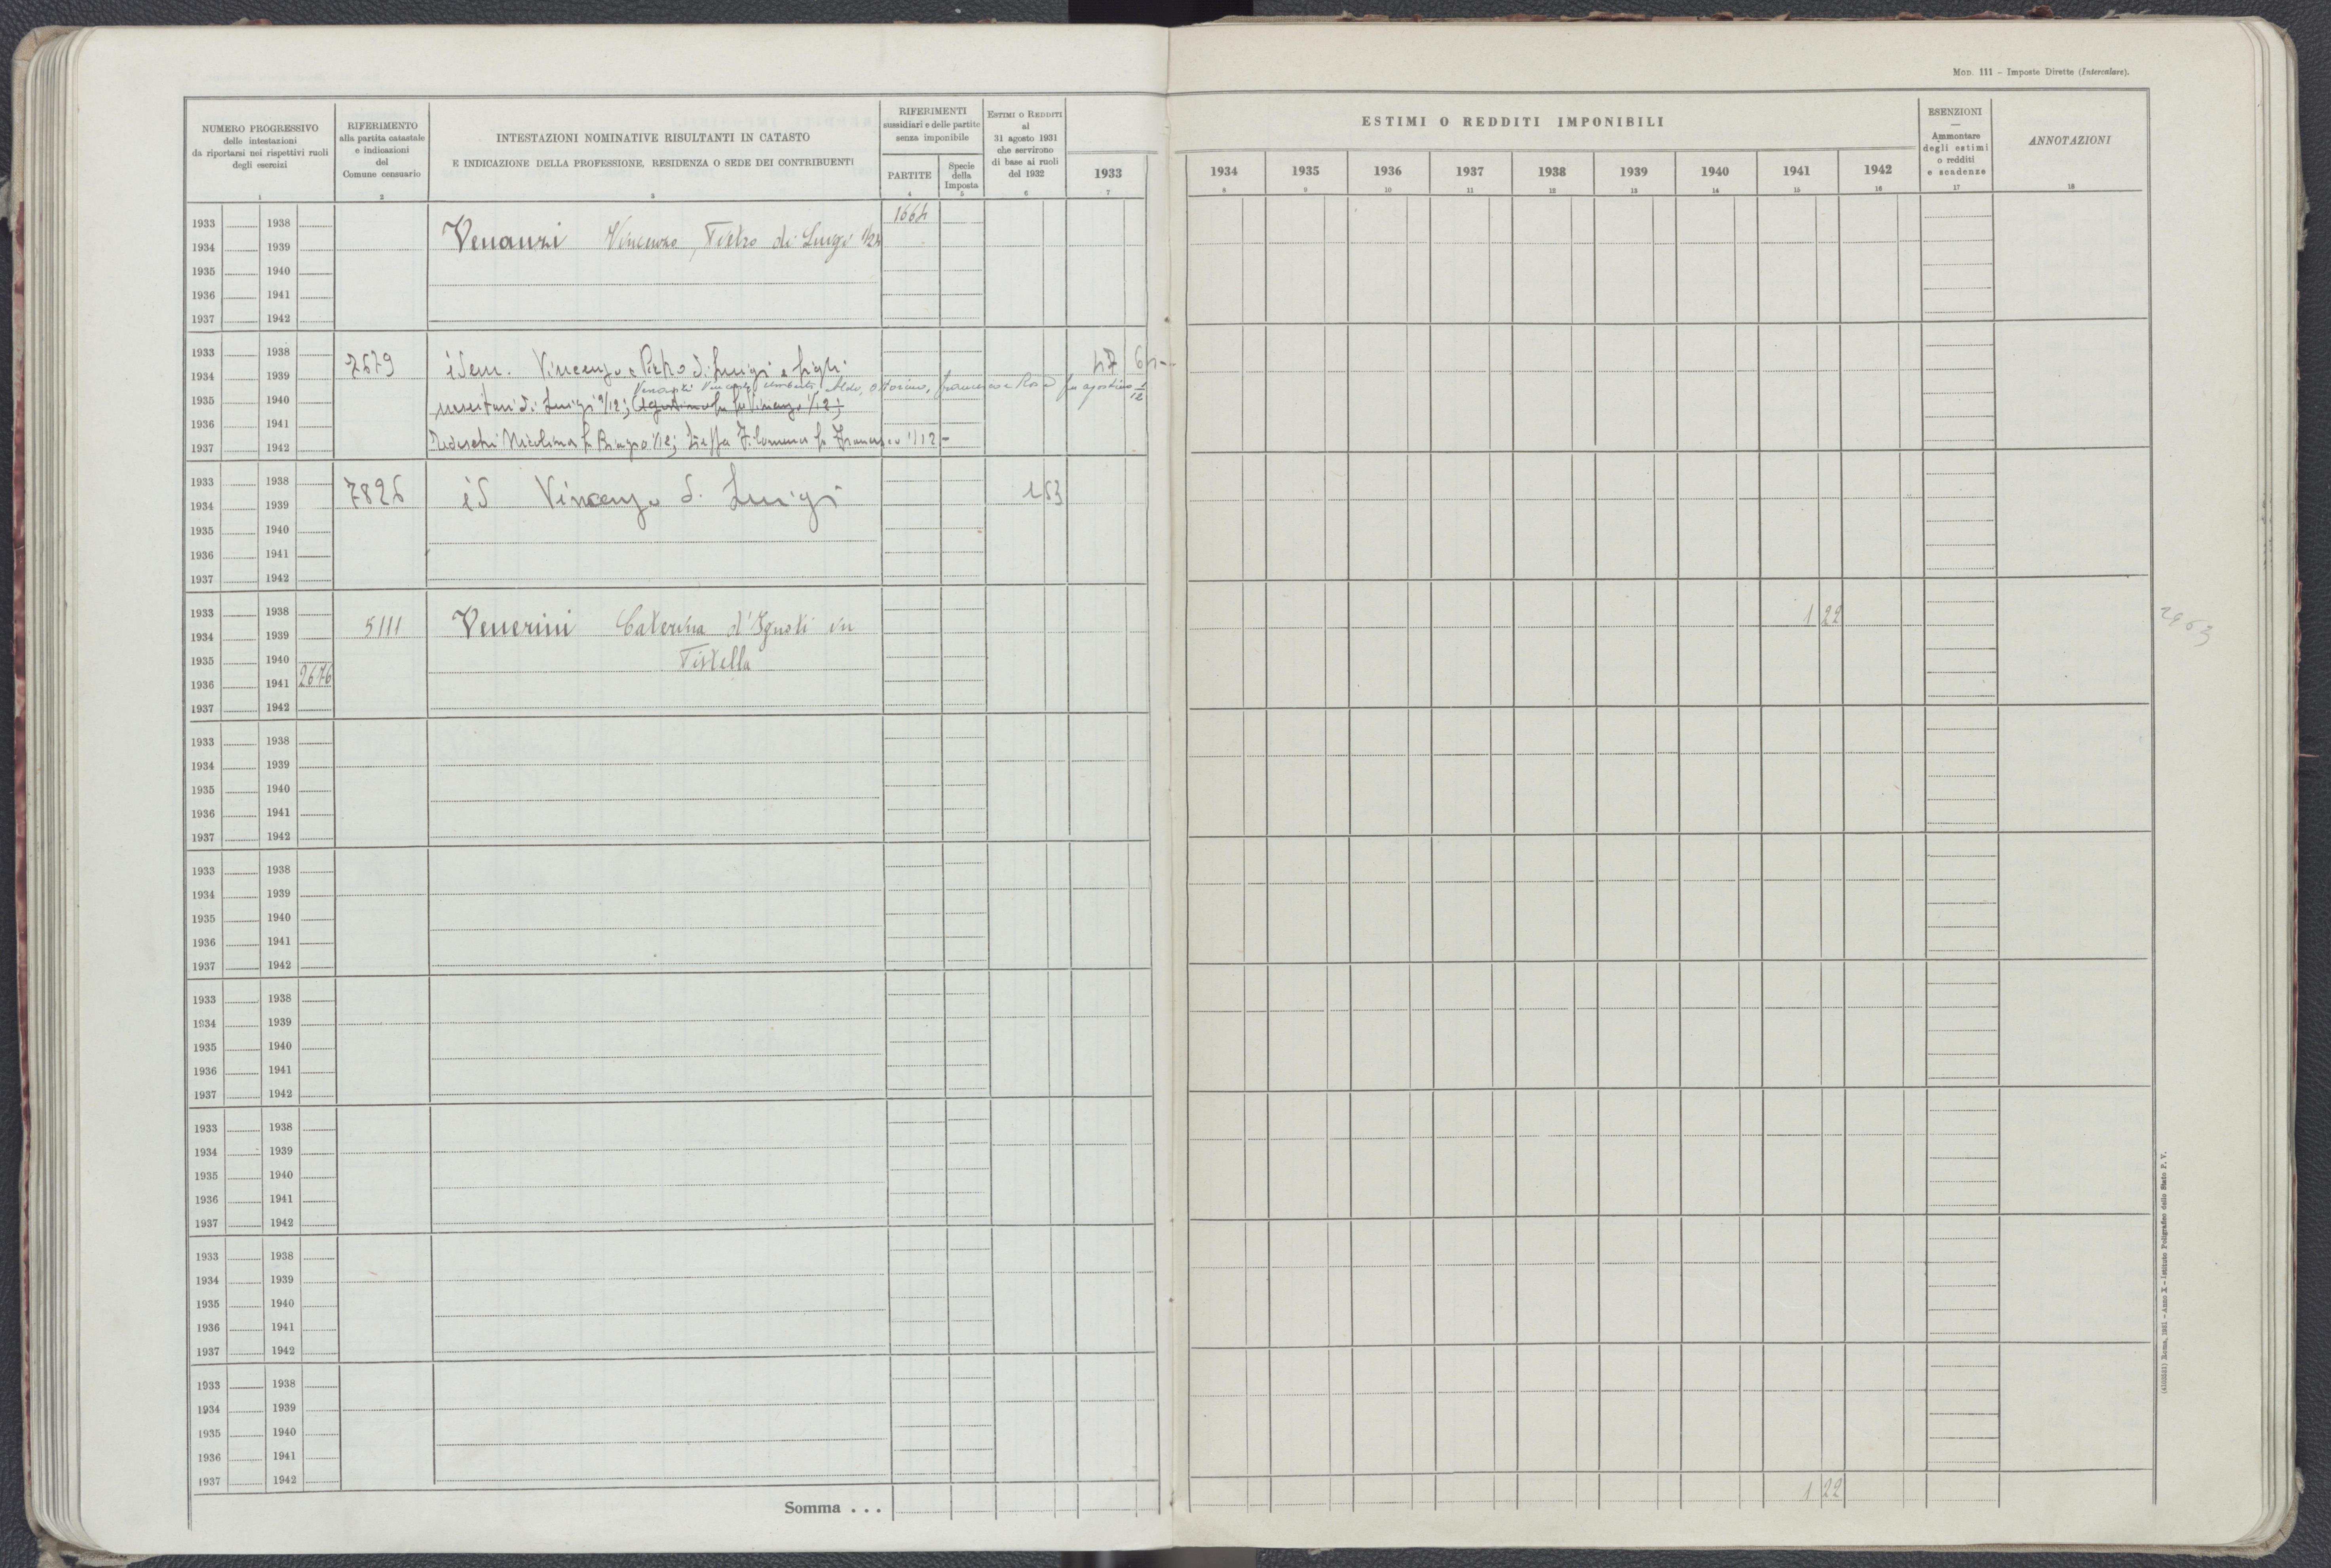 Mod. 111 – Imposte Dirette (Intercalare).
NUMERO PROGRESSIVO
delle intestazioni
da riportarsi nei rispettivi ruoli
degli esercizi
1
RIFERIMENTO
alla partita catastale
e indicazioni
del
Comune censuario
2
INTESTAZIONI NOMINATIVE RISULTANTI IN CATASTO
E INDICAZIONE DELLA PROFESSIONE, RESIDENZA O SEDE DEI CONTRIBUENTI
3
RIFERIMENTI
sussidiari e delle partite
senza imponibile
PARTITE
4
Specie
della
Imposta
5
ESTIMI O REDDITI
al
31 agosto 1931
che servirono
di base ai ruoli
del 1932
6
ESTIMI O REDDITI IMPONIBILI
1933 1934 1935 1936 1937 1938 1939 1940 1941 1942
7 8 9 10 11 12 13 14 15 16
ESENZIONI
—
Ammontare
degli estimi
o redditi
e scadenze
17
ANNOTAZIONI
18
1933 1938 1664
1934 1939 Venanzi Vincenzo, Pietro di Luigi 1/24
1935 1940
1936 1941
1937 1942
1933 1938 7679 idem. Vincenzo e Pietro di Luigi e figli 47 64
1934 1939
Venanzi Vincenzo, Umberto, Aldo, Ottorino, Francesco e Rosa fu Agostino 1/12
1935 1940 nascituri di Luigi 9/12; Agostino fu Vincenzo 1/12;
1936 1941
1937 1942 Tedeschi Nicolina fu Biagio 1/12; Filomena fu Francesco 1/12 -
1933 1938
1934 1939 7826 id Vincenzo di Luigi 1 53
1935 1940
1936 1941
1937 1942
1933 1938 5111 Venerini Caterina d'Ignoti in 1 22 2963
1934 1939
1935 1940 Tistella
1936 1941 2676
1937 1942
1933 1938
1934 1939
1935 1940
1936 1941
1937 1942
1933 1938
1934 1939
1935 1940
1936 1941
1937 1942
1933 1938
1934 1939
1935 1940
1936 1941
1937 1942
1933 1938
1934 1939
1935 1940
1936 1941
1937 1942
1933 1938
1934 1939
1935 1940
1936 1941
1937 1942
1933 1938
1934 1939
1935 1940
1936 1941
1937 1942
Somma . . . 1 22
Roma, 1931 – Anno X – Istituto Poligrafico dello Stato P. V.